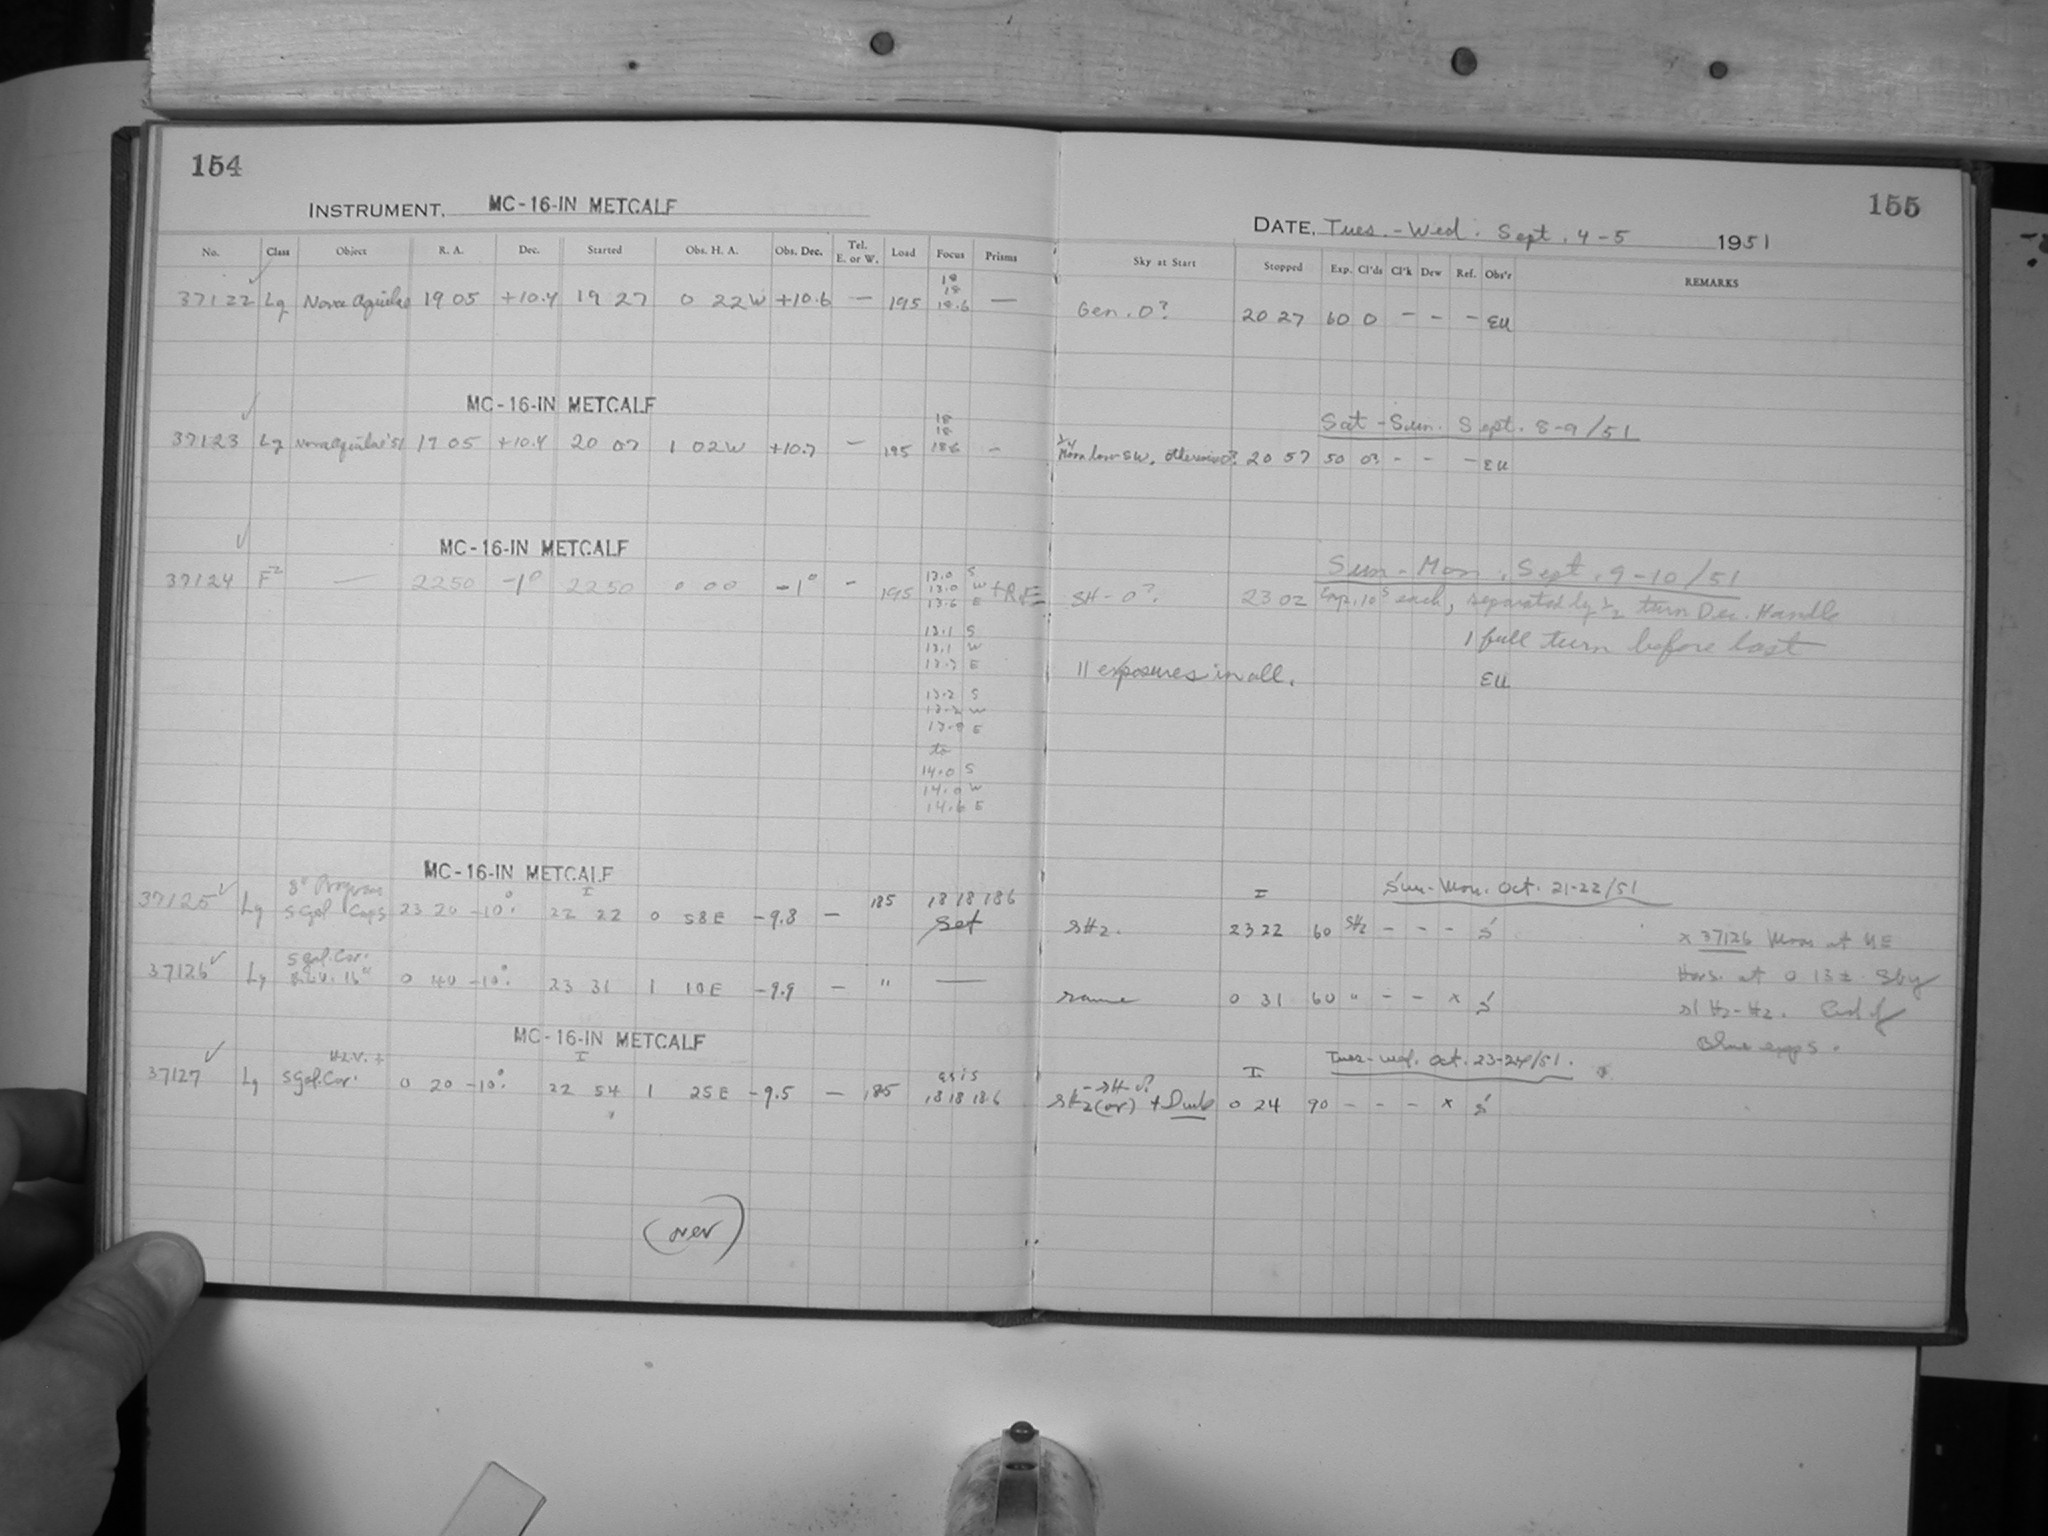 154
INSTRUMENT. MC-16-IN METCALF
No. Class Object R. A. Dec. Started Obs. H. A. Obs. Dec. Tel. E. or W. Load Focus Prisms
18
18
37122 Lg Nova Aquilae 19 05 +10.4 19 27 0 22 W +10.6 — 195 18.6 —
MC-16-IN METCALF
18
18
37123 Lg Nova Aquilae '51 19 05 +10.4 20 07 1 02 W +10.7 — 195 18.6 —
MC-16-IN METCALF
13.0 S
37124 F — 22 50 -1° 22 50 0 00 -1° - 195 13.0 W
13.6 E
13.1 S
13.1 W
13.7 E
13.2 S
13.2 W
13.8 E
to
14.0 S
14.0 W
14.6 E
MC-16-IN METCALF
I
37125 Lg S Gal Caps 23 20 -10° 22 22 0 58 E -9.8 — 185 18 18 18.6
Set
S Gal. Cor.
37126 Lg 0 40 -10° 23 31 1 10 E -9.9 — " —
MC-16-IN METCALF
I
37127 Lg S Gal. Cor. 0 20 -10° 22 54 1 25 E -9.5 — 185 18 18 18.6
(over)
155
DATE, Tues. - Wed. Sept. 4-5 1951
Sky at Start Stopped Exp. Cl'ds Cl'k Dew Ref. Obs'r REMARKS
Gen. 0? 20 27 60 0 - - - EU
Sat - Sun. Sept. 8-9/51
Moon low SW, otherwise 0? 20 57 50 0? - - - EU
Sun - Mon. Sept. 9-10/51
SH - 0? 23 02 Exp. 10s each, separated by 1/2 turn Dec. Handle
1 full turn before last
11 exposures in all. EU
I Sun - Mon. Oct. 21-22/51
sHz. 23 22 60 sHz - - - S
x 37126 Moon at NE
Hors. at 0 13 ± Sky
same 0 31 60 " - - x S
sl Hz-Hz. End of
Blue exps.
I Tues - Wed. Oct. 23-24/51.
0 24 90 - - - x S